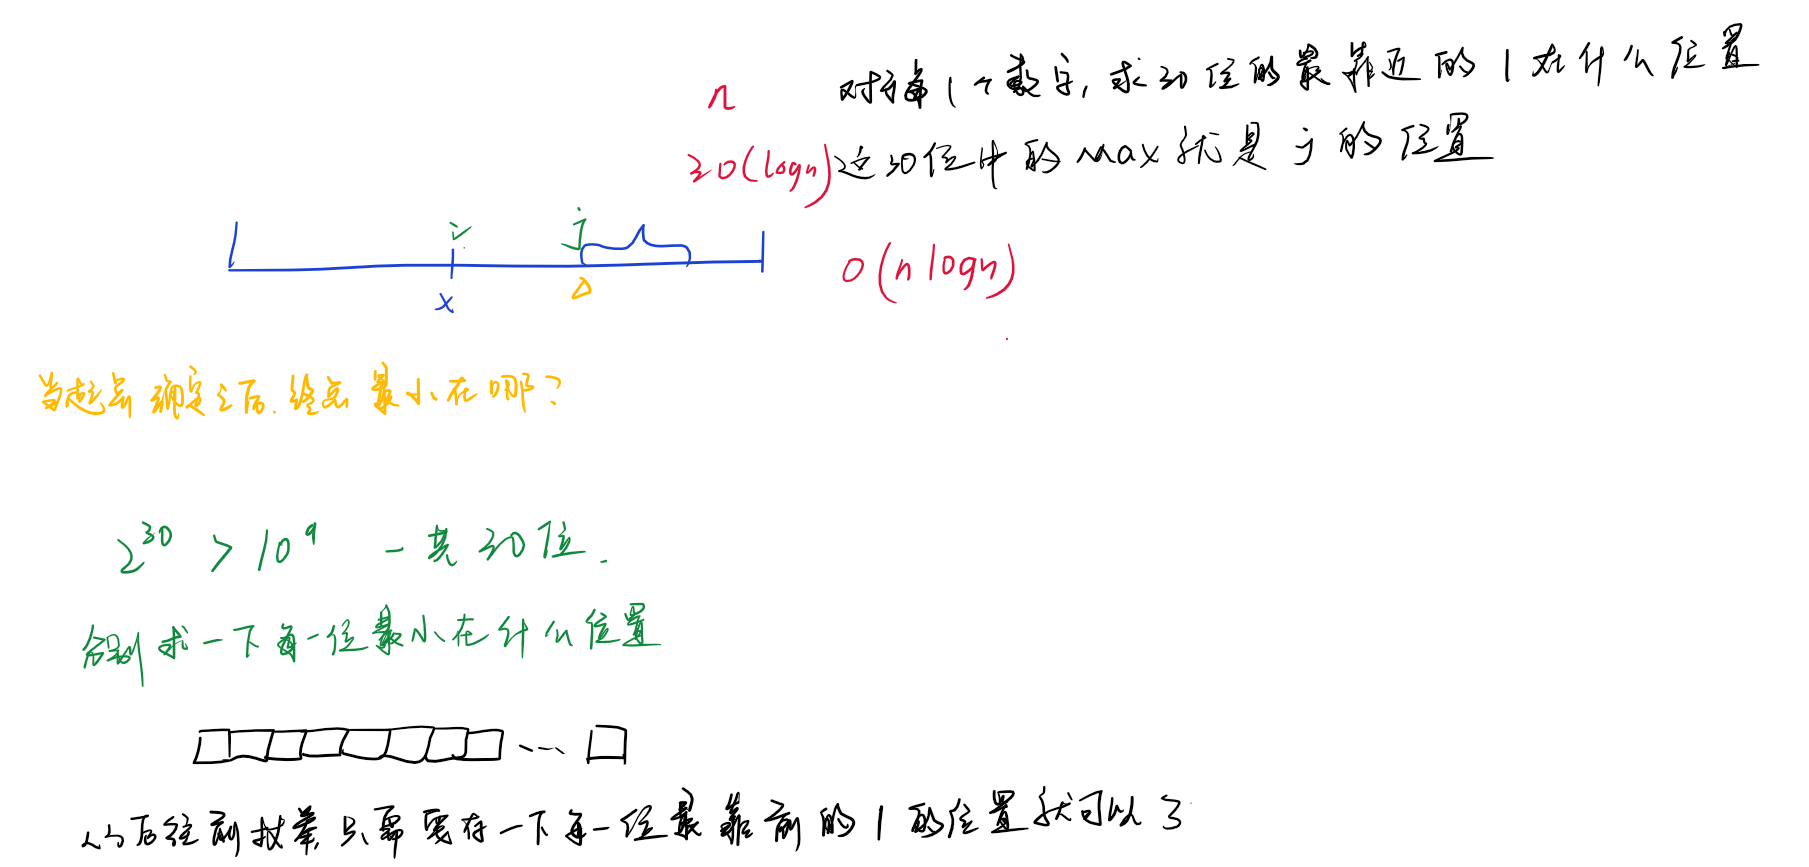 n 对于每1个数字,求30位的最靠近的1在什么位置
30(logn) 这30位中的max就是j的位置
i j
x
O(nlogn)
当起点确定之后.终点最小在哪?
2^30 > 10^9 一共30位.
分别求一下每一位最小在什么位置
...
从后往前枚举,只需要存一下每一位最靠前的1的位置就可以了